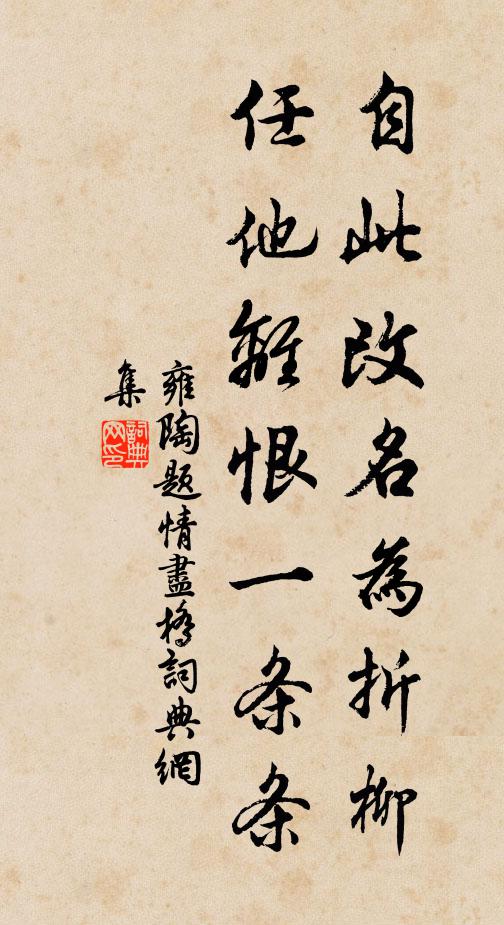 自此改名為折柳
任他離恨一条条
雍陶題情盡橋詞典網
集
詞典
网印